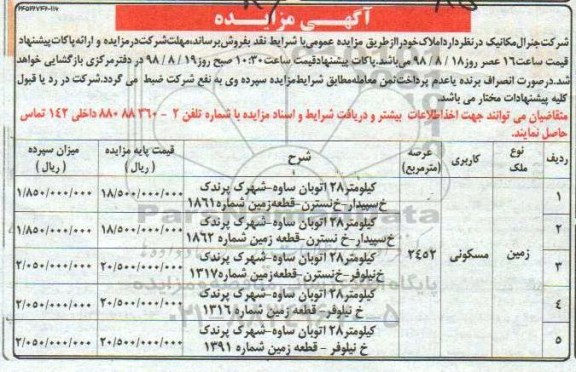 ۶۴۵۶۶۷۴۶-۱۱۶
آگهی مزایده
شرکت جنرال مکانیک در نظر دارد املاک خود را از طریق مزایده عمومی با شرایط نقد بفروش برساند، مهلت شرکت در مزایده و ارائه پاکات پیشنهاد
قیمت ساعت ۱۶ عصر روز ۱۸ / ۸ / ۹۸ می‌باشد. پاکات پیشنهاد قیمت ساعت ۱۰:۳۰ صبح روز ۱۹ / ۸ / ۹۸ در دفتر مرکزی بازگشایی خواهد
شد. در صورت انصراف برنده یا عدم پرداخت ثمن معامله مطابق شرایط مزایده سپرده وی به نفع شرکت ضبط می گردد. شرکت در رد یا قبول
کلیه پیشنهادات مختار می باشد.
متقاضیان می توانند جهت اخذ اطلاعات بیشتر و دریافت شرایط و اسناد مزایده با شماره تلفن ۲ - ۳۶۰ ۸۸ ۸۸۰ داخلی ۱۴۲ تماس
حاصل نمایند.
ردیف نوع ملک کاربری عرصه (مترمربع) شرح قیمت پایه مزایده (ریال) میزان سپرده (ریال)
۱ کیلومتر ۲۸ اتوبان ساوه-شهرک پرندک ۱۸/۵۰۰/۰۰۰/۰۰۰ ۱/۸۵۰/۰۰۰/۰۰۰
خ سپیدار-خ نسترن-قطعه زمین شماره ۱۸۶۱
۲ کیلومتر ۲۸ اتوبان ساوه-شهرک پرندک ۱۸/۵۰۰/۰۰۰/۰۰۰ ۱/۸۵۰/۰۰۰/۰۰۰
خ سپیدار-خ نسترن-قطعه زمین شماره ۱۸۶۲
۳ زمین مسکونی ۲۴۵۲ کیلومتر ۲۸ اتوبان ساوه-شهرک پرندک ۲۰/۵۰۰/۰۰۰/۰۰۰ ۲/۰۵۰/۰۰۰/۰۰۰
خ نیلوفر-خ نسترن-قطعه زمین شماره ۱۳۱۷
۴ کیلومتر ۲۸ اتوبان ساوه-شهرک پرندک ۲۰/۵۰۰/۰۰۰/۰۰۰ ۲/۰۵۰/۰۰۰/۰۰۰
خ نیلوفر- قطعه زمین شماره ۱۳۱۶
۵ کیلومتر ۲۸ اتوبان ساوه-شهرک پرندک ۲۰/۵۰۰/۰۰۰/۰۰۰ ۲/۰۵۰/۰۰۰/۰۰۰
خ نیلوفر - قطعه زمین شماره ۱۳۹۱